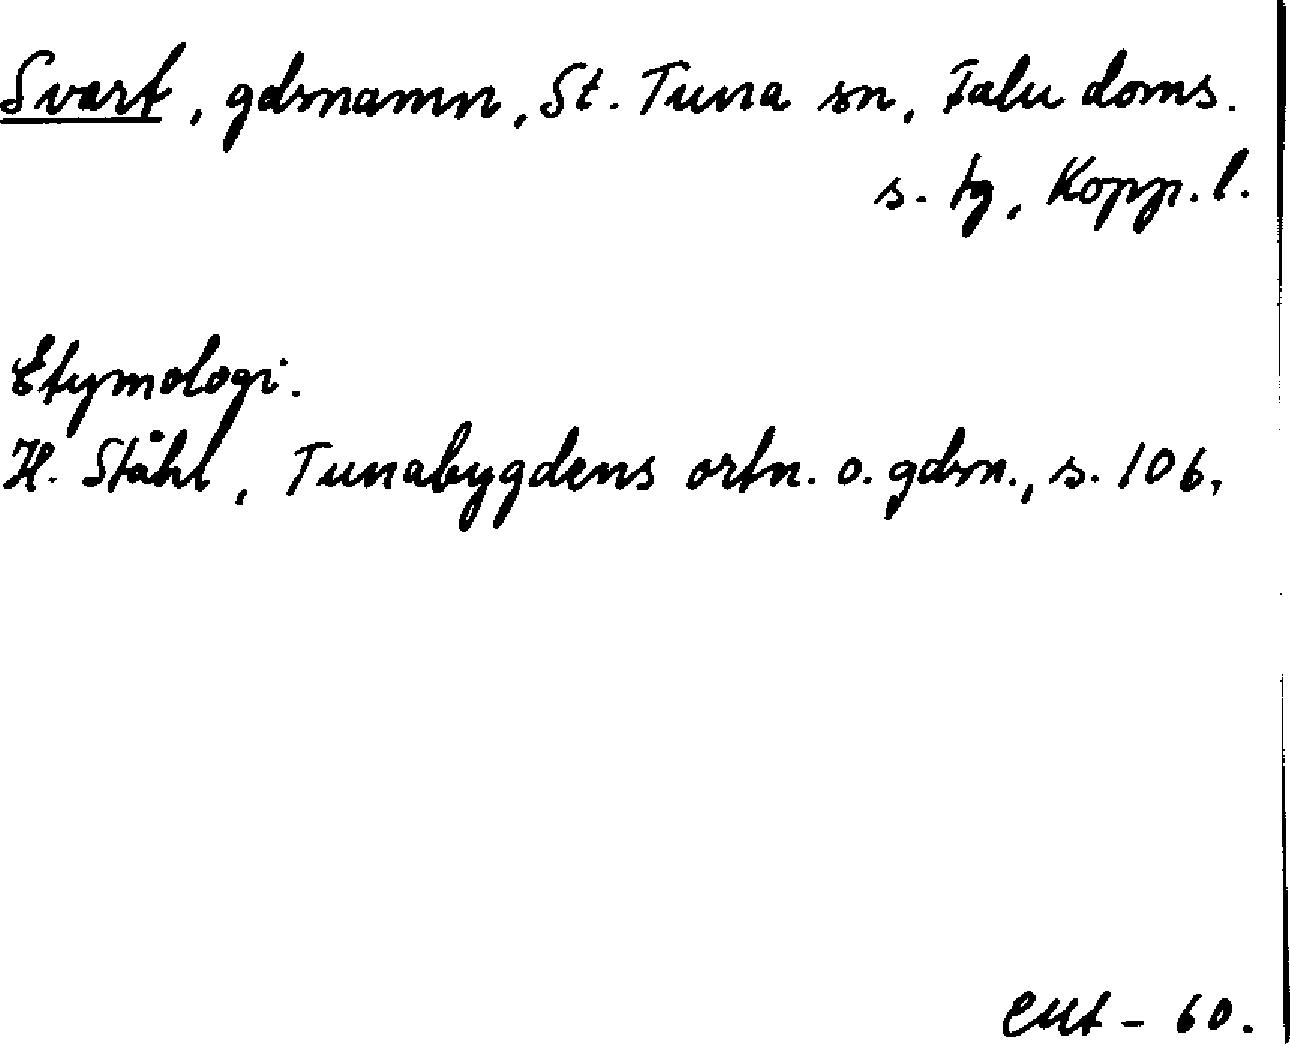 Svart, gdsnamn, St. Tuna sn, Falu doms.
s. tg, Kopp. l.
Etymologi.
H. Ståhl, Tunabygdens ortn. o. gdsn., s. 106.
- 60.